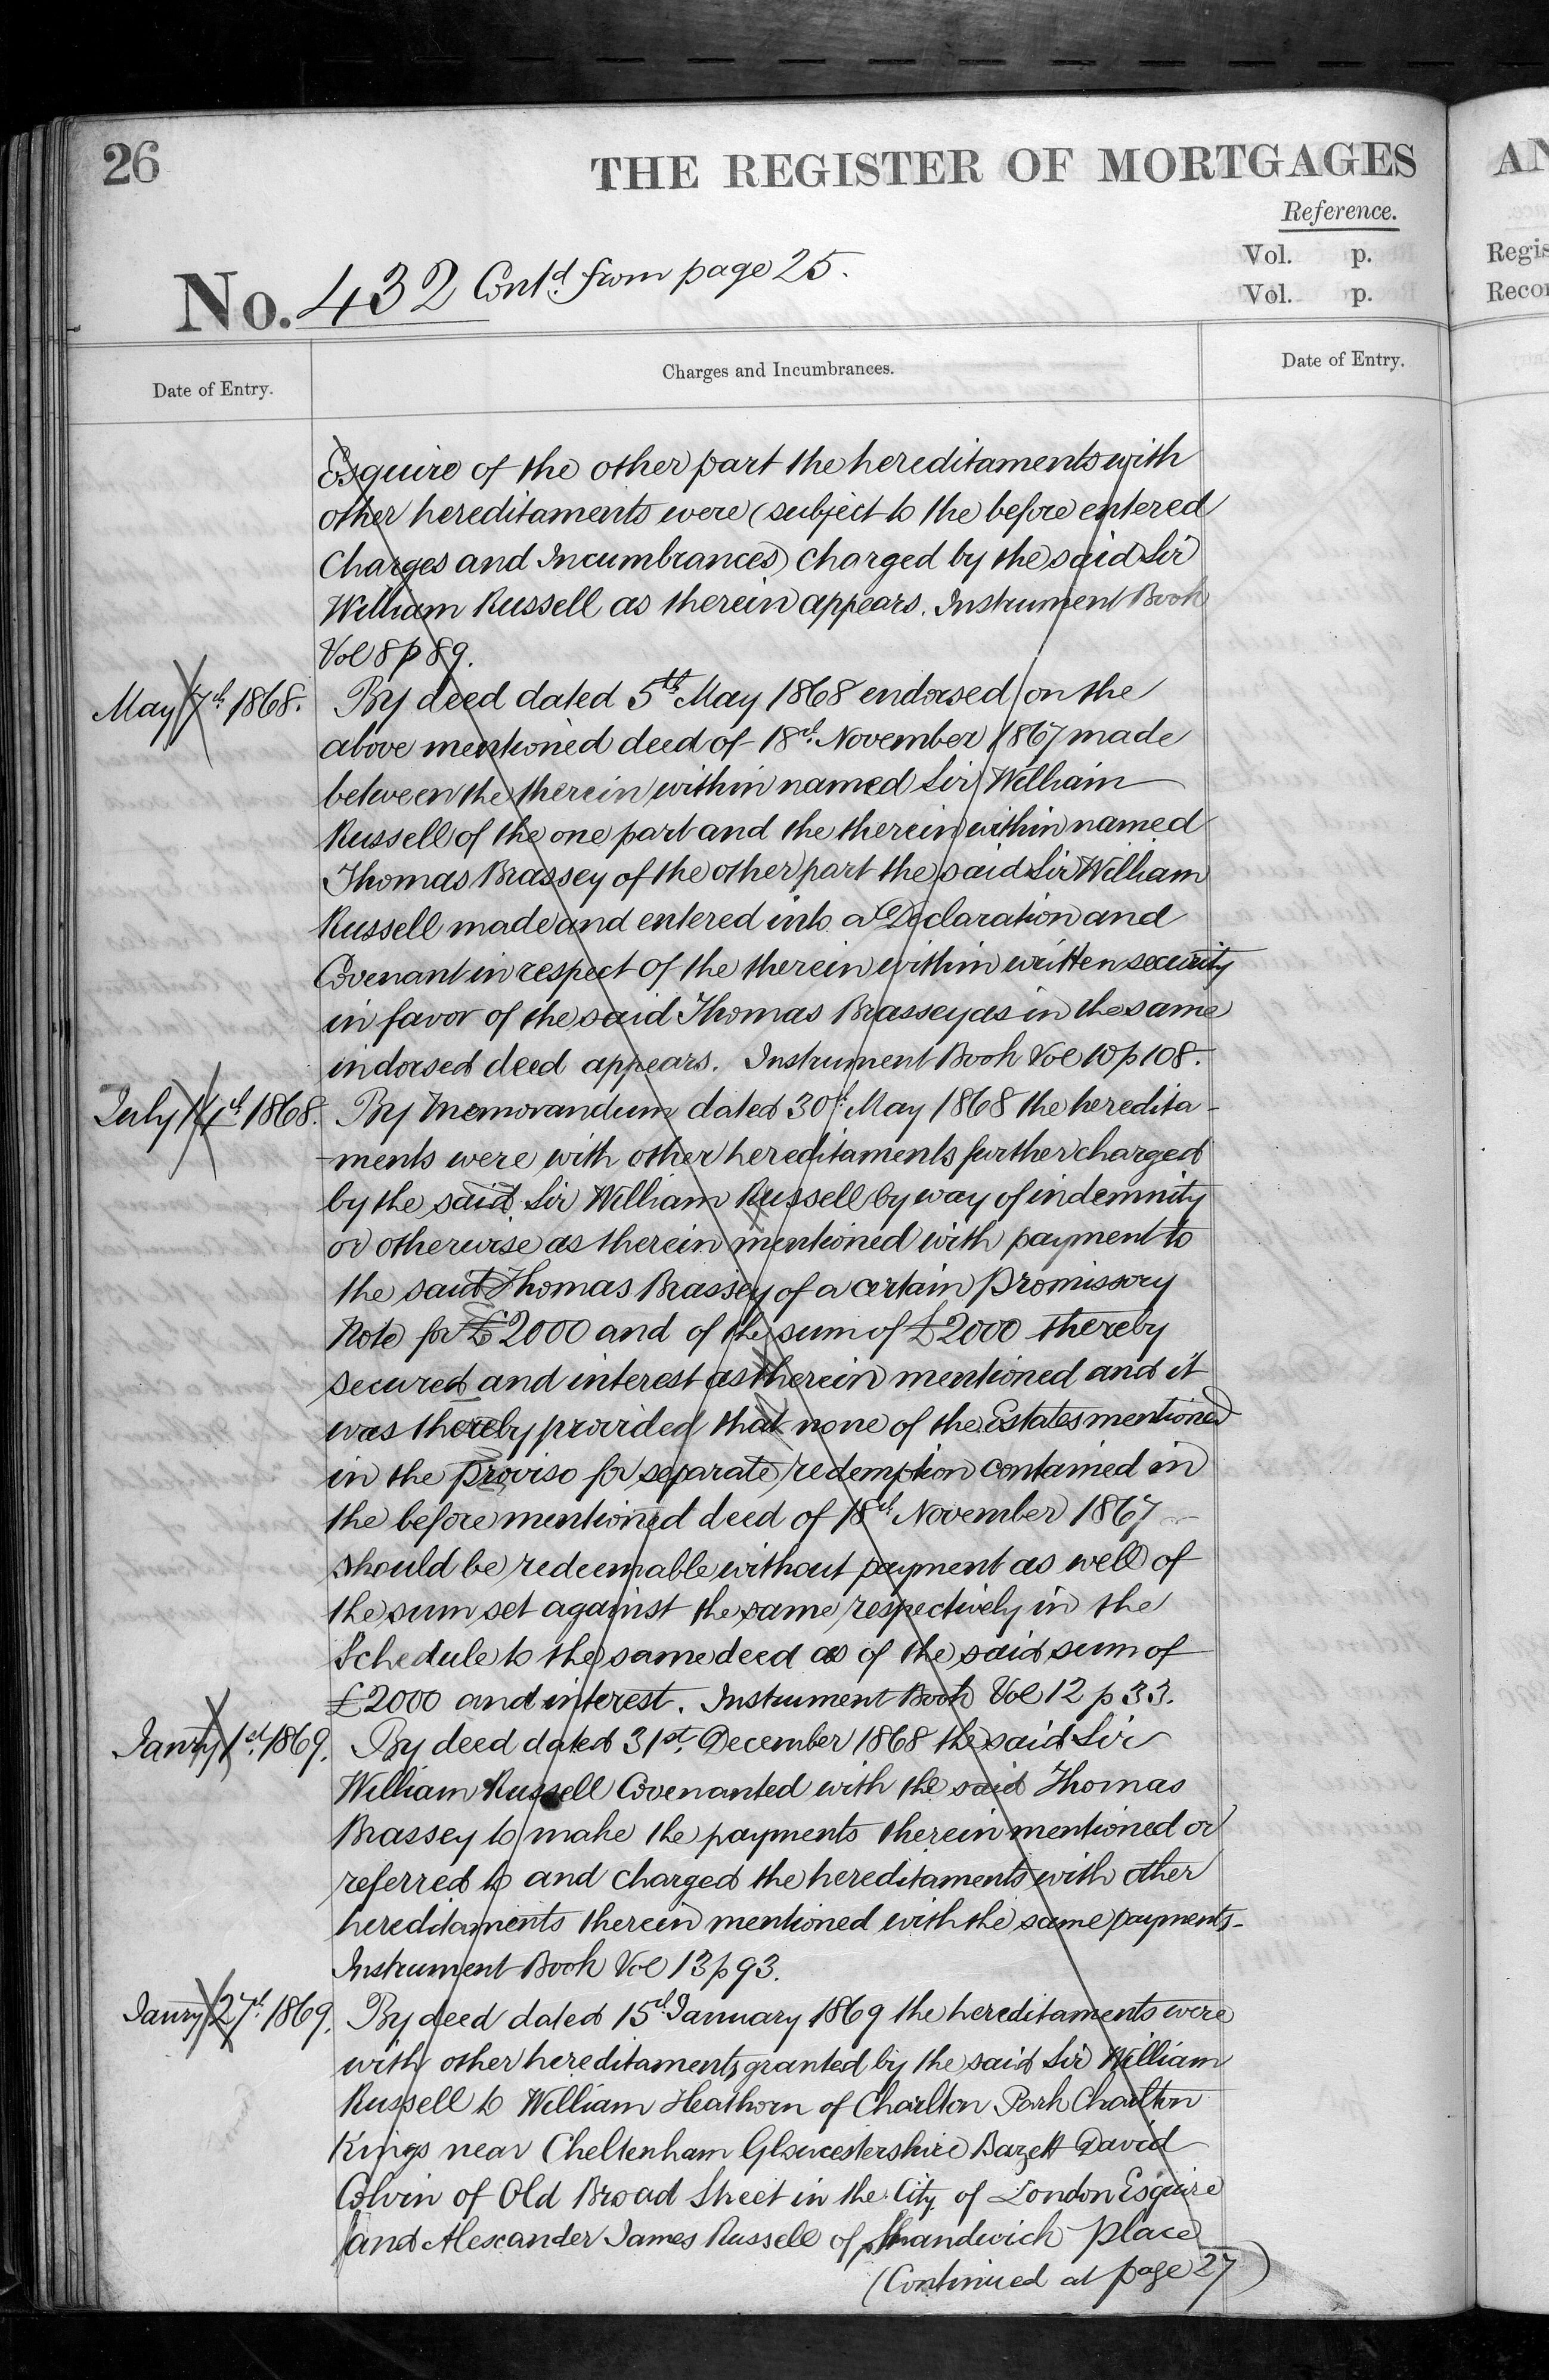 26
THE REGISTER OF MORTGAGES
Reference.
Vol. p.
Vol. p.
No. 432 Contd. from page 25.
Date of Entry.
Charges and Incumbrances.
Date of Entry.
Esquire of the other part the hereditaments with
other hereditaments were (subject to the before entered
Charges and Incumbrances) charged by the said Sir
William Russell as therein appears. Instrument Book
Vol 8 p 89.
May 7th 1868.
By deed dated 5th May 1868 endorsed on the
above mentioned deed of 18th November 1867 made
between the therein within named Sir William
Russell of the one part and the therein within named
Thomas Brassey of the other part the said Sir William
Russell made and entered into a Declaration and
Covenant in respect of the therein within written security
in favor of the said Thomas Brassey as in the same
indorsed deed appears. Instrument Book Vol 10 p 108.
July 14th 1868.
By Memorandum dated 30th May 1868 the heredita-
-ments were with other hereditaments further charged
by the said Sir William Russell by way of indemnity
or otherwise as therein mentioned with payment to
the said Thomas Brassey of a certain Promissory
Note for £2000 and of the sum of £2000 thereby
secured and interest as therein mentioned and it
was thereby provided that none of the Estates mentioned
in the proviso for separate redemption contained in
the before mentioned deed of 18th November 1867
should be redeemable without payment as well of
the sum set against the same respectively in the
Schedule to the same deed as of the said sum of
£2000 and interest. Instrument Book Vol 12 p 33.
Janry 1st 1869.
By deed dated 31st December 1868 the said Sir
William Russell Covenanted with the said Thomas
Brassey to make the payments therein mentioned or
referred to and charged the hereditaments with other
hereditaments therein mentioned with the same payments.
Instrument Book Vol 13 p 93.
Janry 27th 1869.
By deed dated 15th January 1869 the hereditaments were
with other hereditaments granted by the said Sir William
Russell to William Heathorn of Charlton Park Charlton
Kings near Cheltenham Gloucestershire Bazett David
Colvin of Old Broad Street in the City of London Esquire
and Alexander James Russell of Shandwich Place
(Continued at page 27)
AN
Regis
Recor